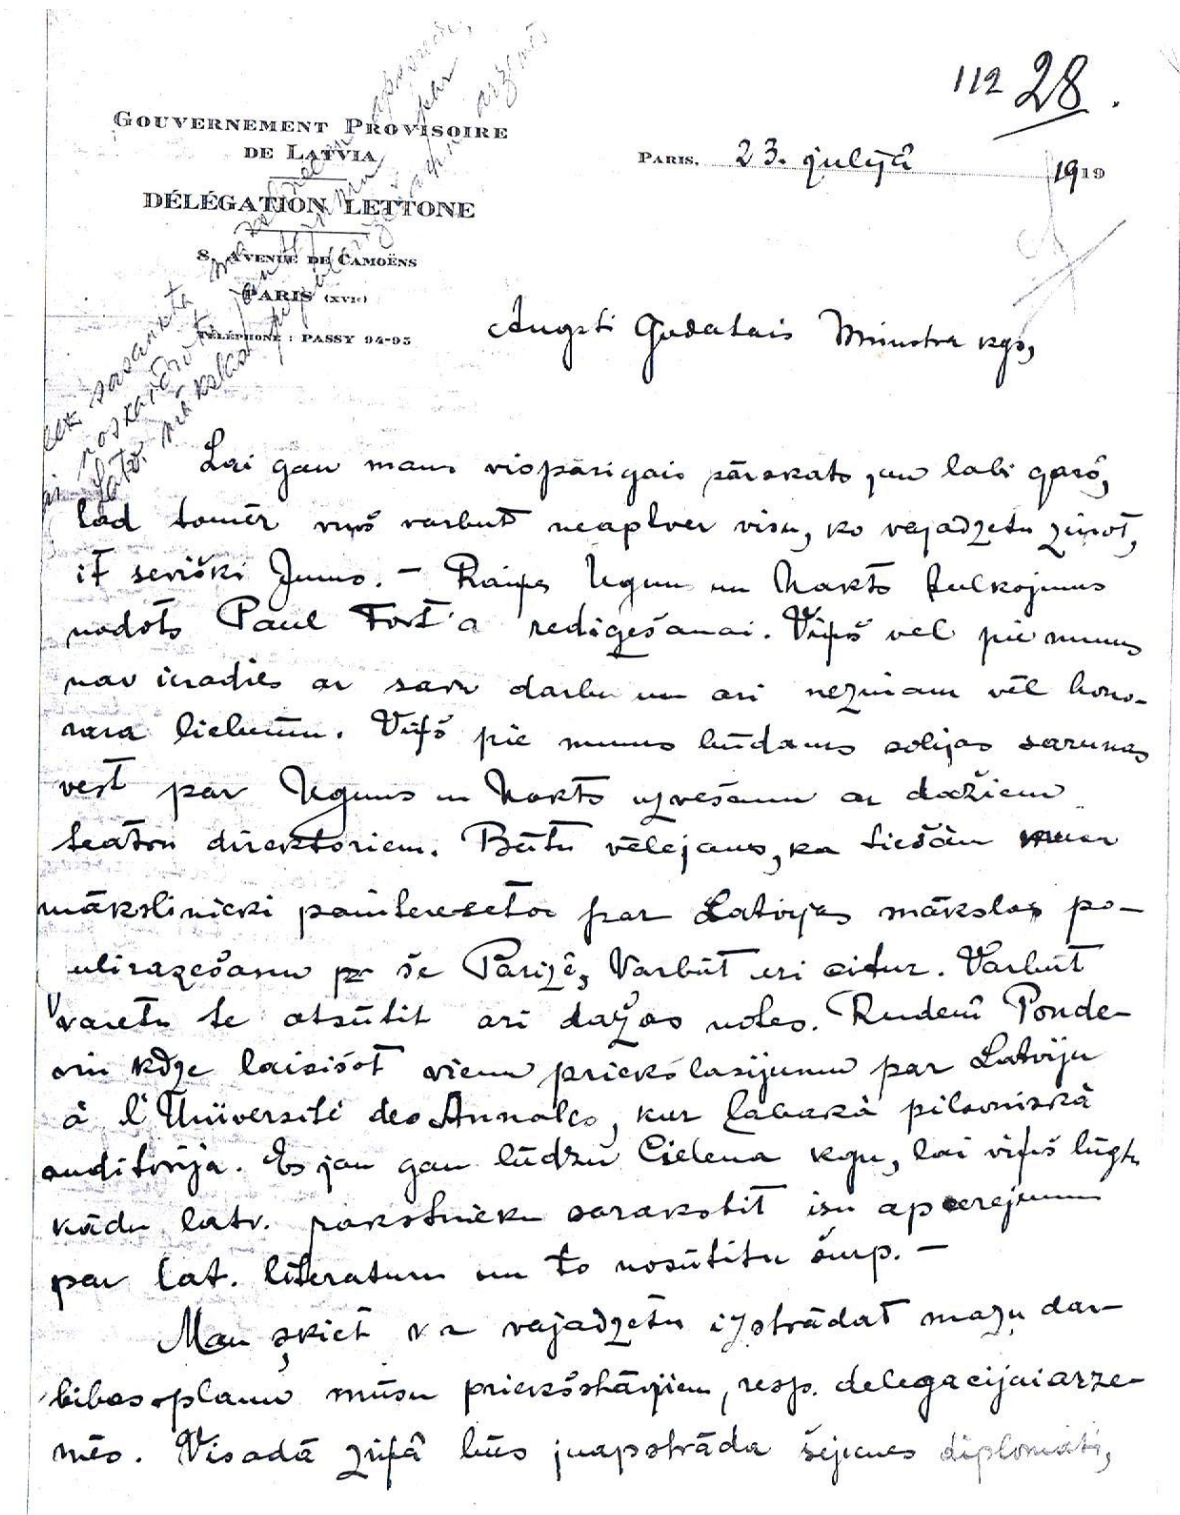 112 28.
GOUVERNEMENT PROVISOIRE
DE LATVIA
DÉLÉGATION LETTONE
8, AVENUE DE CAMOËNS
PARIS (XVIe)
TÉLÉPHONE : PASSY 94-95
PARIS, 23. julijâ 1919
Augsti Godatais Ministra kgs,
Lai gan mans vispārigais pārskats jau labi garš,
tad tomēr viņš varbūt neaptver visu, ko vajadzetu ziņot,
it sevišķi Jums. – Raiņa Uguns un Nakts tulkojums
nodots Paul Fort'a redigešanai. Viņš vel pie mums
nav ieradies ar savu darbu un ari nezinam vēl hono-
rara lielumu. Viņš pie mums būdams solijas sarunas
vest par Uguns un Nakts uzvešanu ar dažiem
teatru direktoriem. Būtu vēlejams, ka tiešām
mākslinieki painteresetos par Latvijas mākslas po-
šē Parizê, Varbūt ari citur. Varbūt
varetu te atsūtit ari dažas notes. Rudenî Ponde-
kdze laisišot vienu priekšlasijumu par Latviju
à l'Université des Annales, kur labakà pilsoniskà
auditorija. Es jau gan lūdzu Cielena kgu, lai viņš lūgtu
kādu latv. rakstnieku sarakstit isu apcerejumu
par lat. literaturu un to nosūtitu šurp. –
Man šķiet ka vajadzetu izstrādat mazu dar-
bibas planu mūsu priekšstāvjiem, resp. delegacijai arze-
mēs. Visadā ziņâ būs jaapstrāda šejienes diplomati,